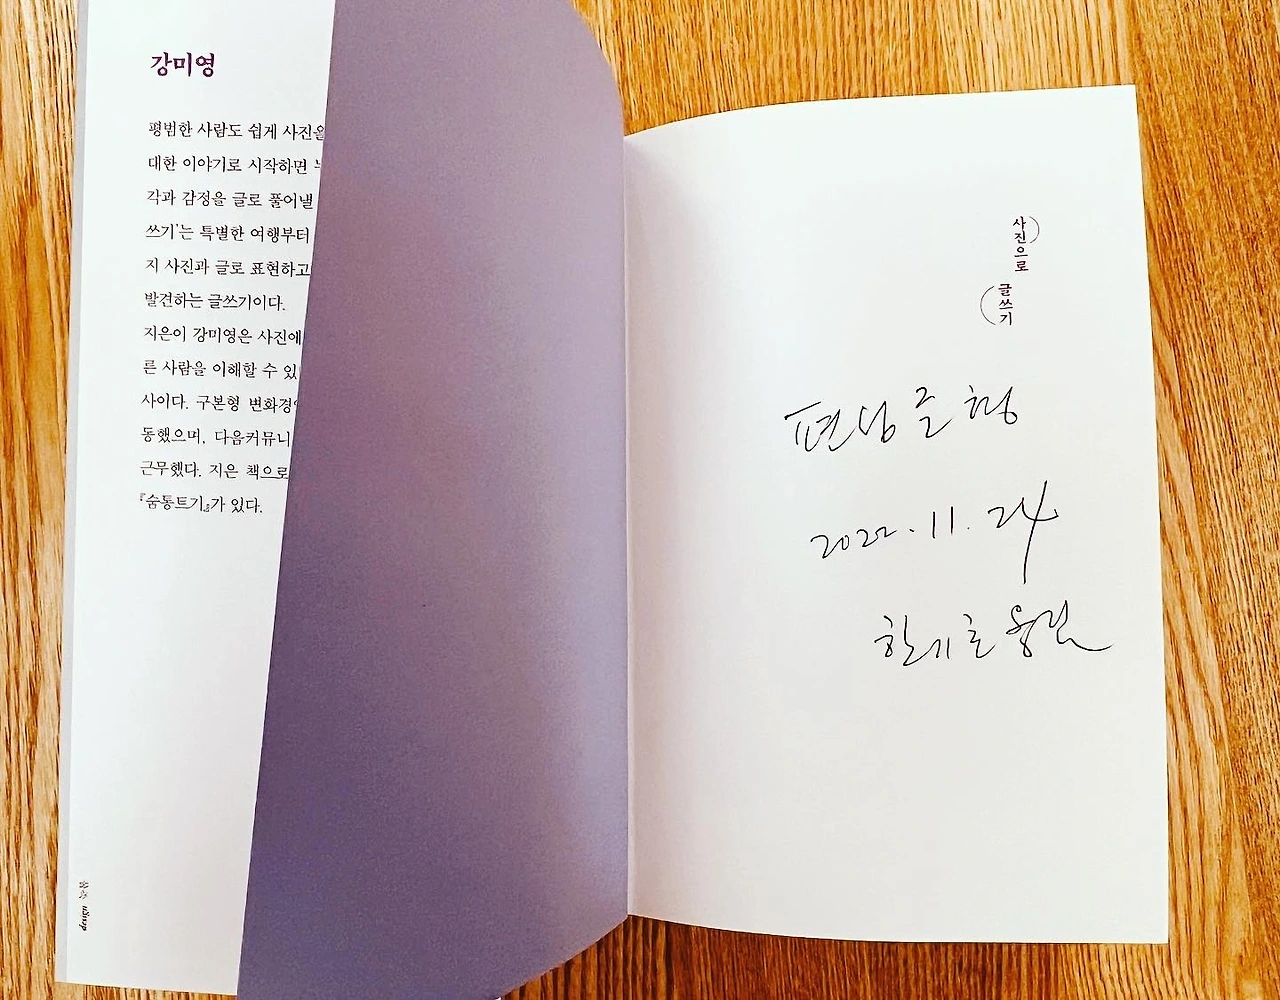 강미영
평범한 사람도 쉽게 사진을
대한 이야기로 시작하면
각과 감정을 글로 풀어낼
쓰기'는 특별한 여행부터
지 사진과 글로 표현하고
발견하는 글쓰기이다.
지은이 강미영은 사진에
른 사람을 이해할 수 있
사이다. 구본형 변화경
동했으며, 다음커뮤니
근무했다. 지은 책으로
『숨통트기』가 있다.
design
사진으로
글쓰기
2022. 11. 24